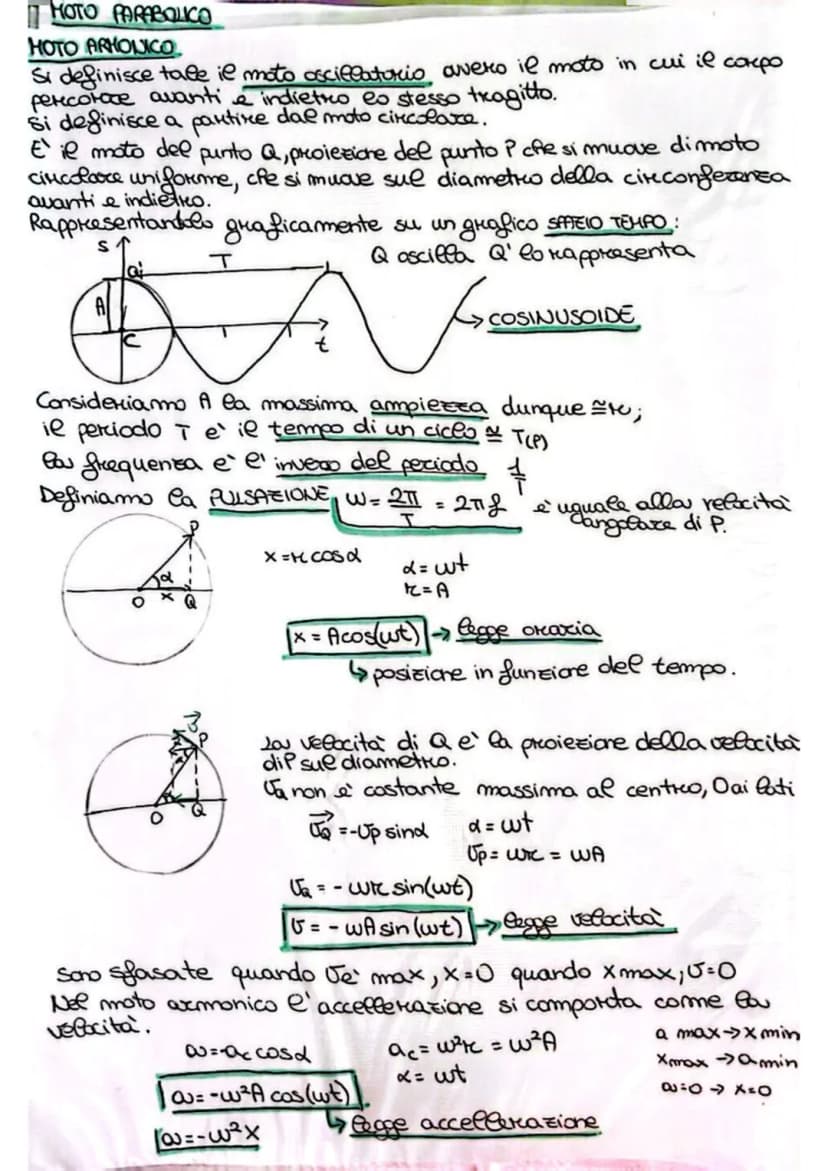 MOTO PARABOLICO
MOTO ARMONICO
Si definisce tale il moto oscillatorio, ovvero il moto in cui il corpo
percorre avanti e indietro lo stesso tragitto.
Si definisce a partire dal moto circolare.
E' il moto del punto Q, proiezione del punto P che si muove di moto
circolare uniforme, che si muove sul diametro della circonferenza
avanti e indietro.
Rappresentandolo graficamente su un grafico SPAZIO TEMPO:
Q oscilla Q' lo rappresenta
S
Q'
T
A
C
t
→ COSINUSOIDE
Consideriamo A la massima ampiezza dunque ≅r;
il periodo T e' il tempo di un ciclo ≅ T(P)
la frequenza e' l'inverso del periodo 1/T
Definiamo la PULSAZIONE, ω = 2π/T = 2πf e' uguale alla velocità
angolare di P.
P
α
O x Q
x = r cosα
α = ωt
r = A
x = Acos(ωt) → legge oraria
↳ posizione in funzione del tempo.
P
O
Q
La velocità di Q e' la proiezione della velocità
di P sul diametro.
VQ non e' costante massima al centro, 0 ai lati
VQ = -Vp sinα
α = ωt
Vp = ωr = ωA
VQ = - ωr sin(ωt)
V = - ωA sin(ωt) → legge velocità
Sono sfasate quando V e' max, x=0 quando x max, V=0
Nel moto armonico l'accellerazione si comporta come la
velocità.
a = -ac cosα
ac = ω²r = ω²A
α = ωt
a max → x min
x max → a min
a=0 → x=0
a = -ω²A cos(ωt)
↳ legge accellerazione
a = -ω²x